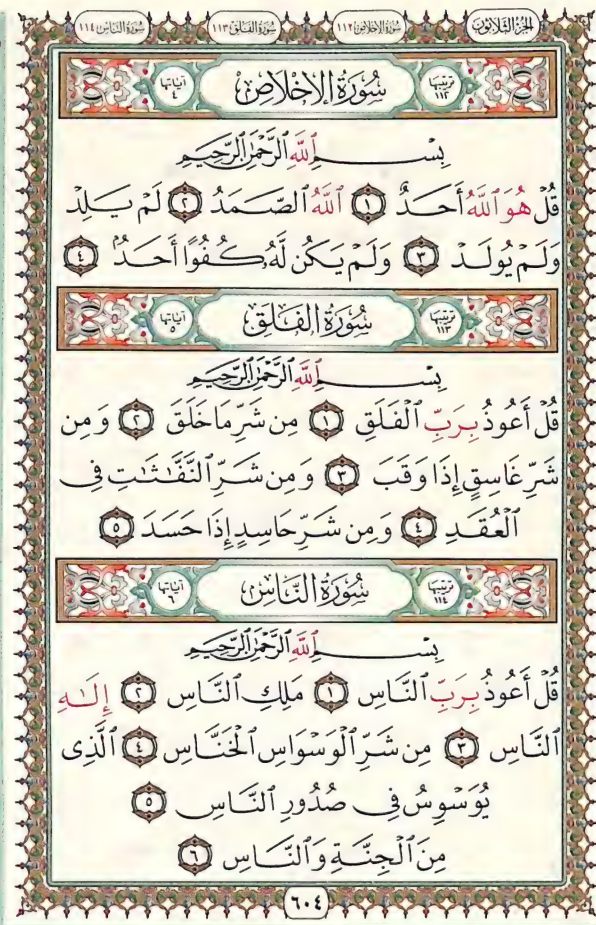 الجزء الثلاثون سورة الإخلاص ١١٢ سورة الفلق ١١٣ سورة الناس ١١٤
ترتيبها ١١٢ سُورَةُ الإِخْلَاصِ آياتها ٤
بِسْمِ ٱللَّهِ ٱلرَّحْمَٰنِ ٱلرَّحِيمِ
قُلْ هُوَ ٱللَّهُ أَحَدٌ ١ ٱللَّهُ ٱلصَّمَدُ ٢ لَمْ يَلِدْ
وَلَمْ يُولَدْ ٣ وَلَمْ يَكُن لَّهُۥ كُفُوًا أَحَدٌۢ ٤
ترتيبها ١١٣ سُورَةُ الفَلَقِ آياتها ٥
بِسْمِ ٱللَّهِ ٱلرَّحْمَٰنِ ٱلرَّحِيمِ
قُلْ أَعُوذُ بِرَبِّ ٱلْفَلَقِ ١ مِن شَرِّ مَا خَلَقَ ٢ وَمِن
شَرِّ غَاسِقٍ إِذَا وَقَبَ ٣ وَمِن شَرِّ ٱلنَّفَّٰثَٰتِ فِى
ٱلْعُقَدِ ٤ وَمِن شَرِّ حَاسِدٍ إِذَا حَسَدَ ٥
ترتيبها ١١٤ سُورَةُ النَّاسِ آياتها ٦
بِسْمِ ٱللَّهِ ٱلرَّحْمَٰنِ ٱلرَّحِيمِ
قُلْ أَعُوذُ بِرَبِّ ٱلنَّاسِ ١ مَلِكِ ٱلنَّاسِ ٢ إِلَٰهِ
ٱلنَّاسِ ٣ مِن شَرِّ ٱلْوَسْوَاسِ ٱلْخَنَّاسِ ٤ ٱلَّذِى
يُوَسْوِسُ فِى صُدُورِ ٱلنَّاسِ ٥
مِنَ ٱلْجِنَّةِ وَٱلنَّاسِ ٦
٦٠٤